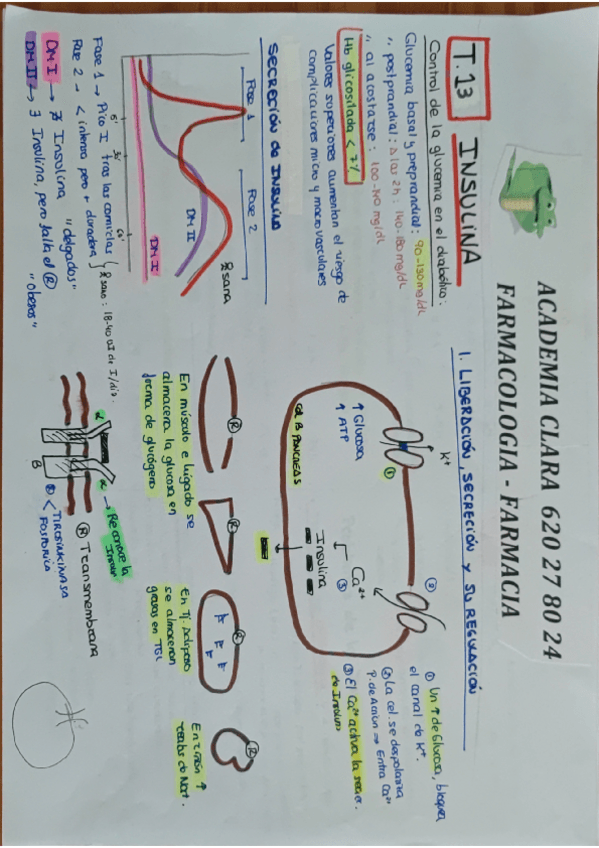 ACADEMIA CLARA 620 27 80 24
FARMACOLOGIA - FARMACIA
T.13 INSULINA
Control de la glucemia en el diabético:
Glucemia basal y preprandial: 90-130 mg/dL
" postprandial: A las 2h: 140-180 mg/dL
" al acostarse: 100-140 mg/dL
Hb glicosilada < 7%
Valores superiores aumentan el riesgo de
complicaciones micro y macrovasculares
SECRECIÓN DE INSULINA
Fase 1
Fase 2
sana
DM II
DM I
Fase 1 → Pico I tras las comidas
Fase 2 → < intensa pero + duradera
sano: 18-40 UI de I/día.
DM I → ∄ Insulina "delgados"
DM II → ∃ Insulina, pero falla el Ⓡ "obesos"
1. LIBERACIÓN, SECRECIÓN Y SU REGULACIÓN
K+
①
②
↑ Glucosa
↑ ATP
Ca2+
③
Insulina
CEL B PÁNCREAS
① Un ↑ de Glucosa, bloquea
el canal de K+.
② La cel. se despolariza
P. de Acción → Entra Ca2+
③ El Ca2+ activa la secr.
de Insulina
Ⓡ
En músculo e hígado se
almacena la glucosa en
forma de glucógeno
Ⓡ
Ⓡ
En Tj. Adiposo
se almacenan
grasas en TGL
Ⓡ
En riñón ↑
reabs de Na+.
α
α → Reconoce la
Insulina
Ⓡ Transmembrana
B
TIROSINKINASA
FOSFORILA